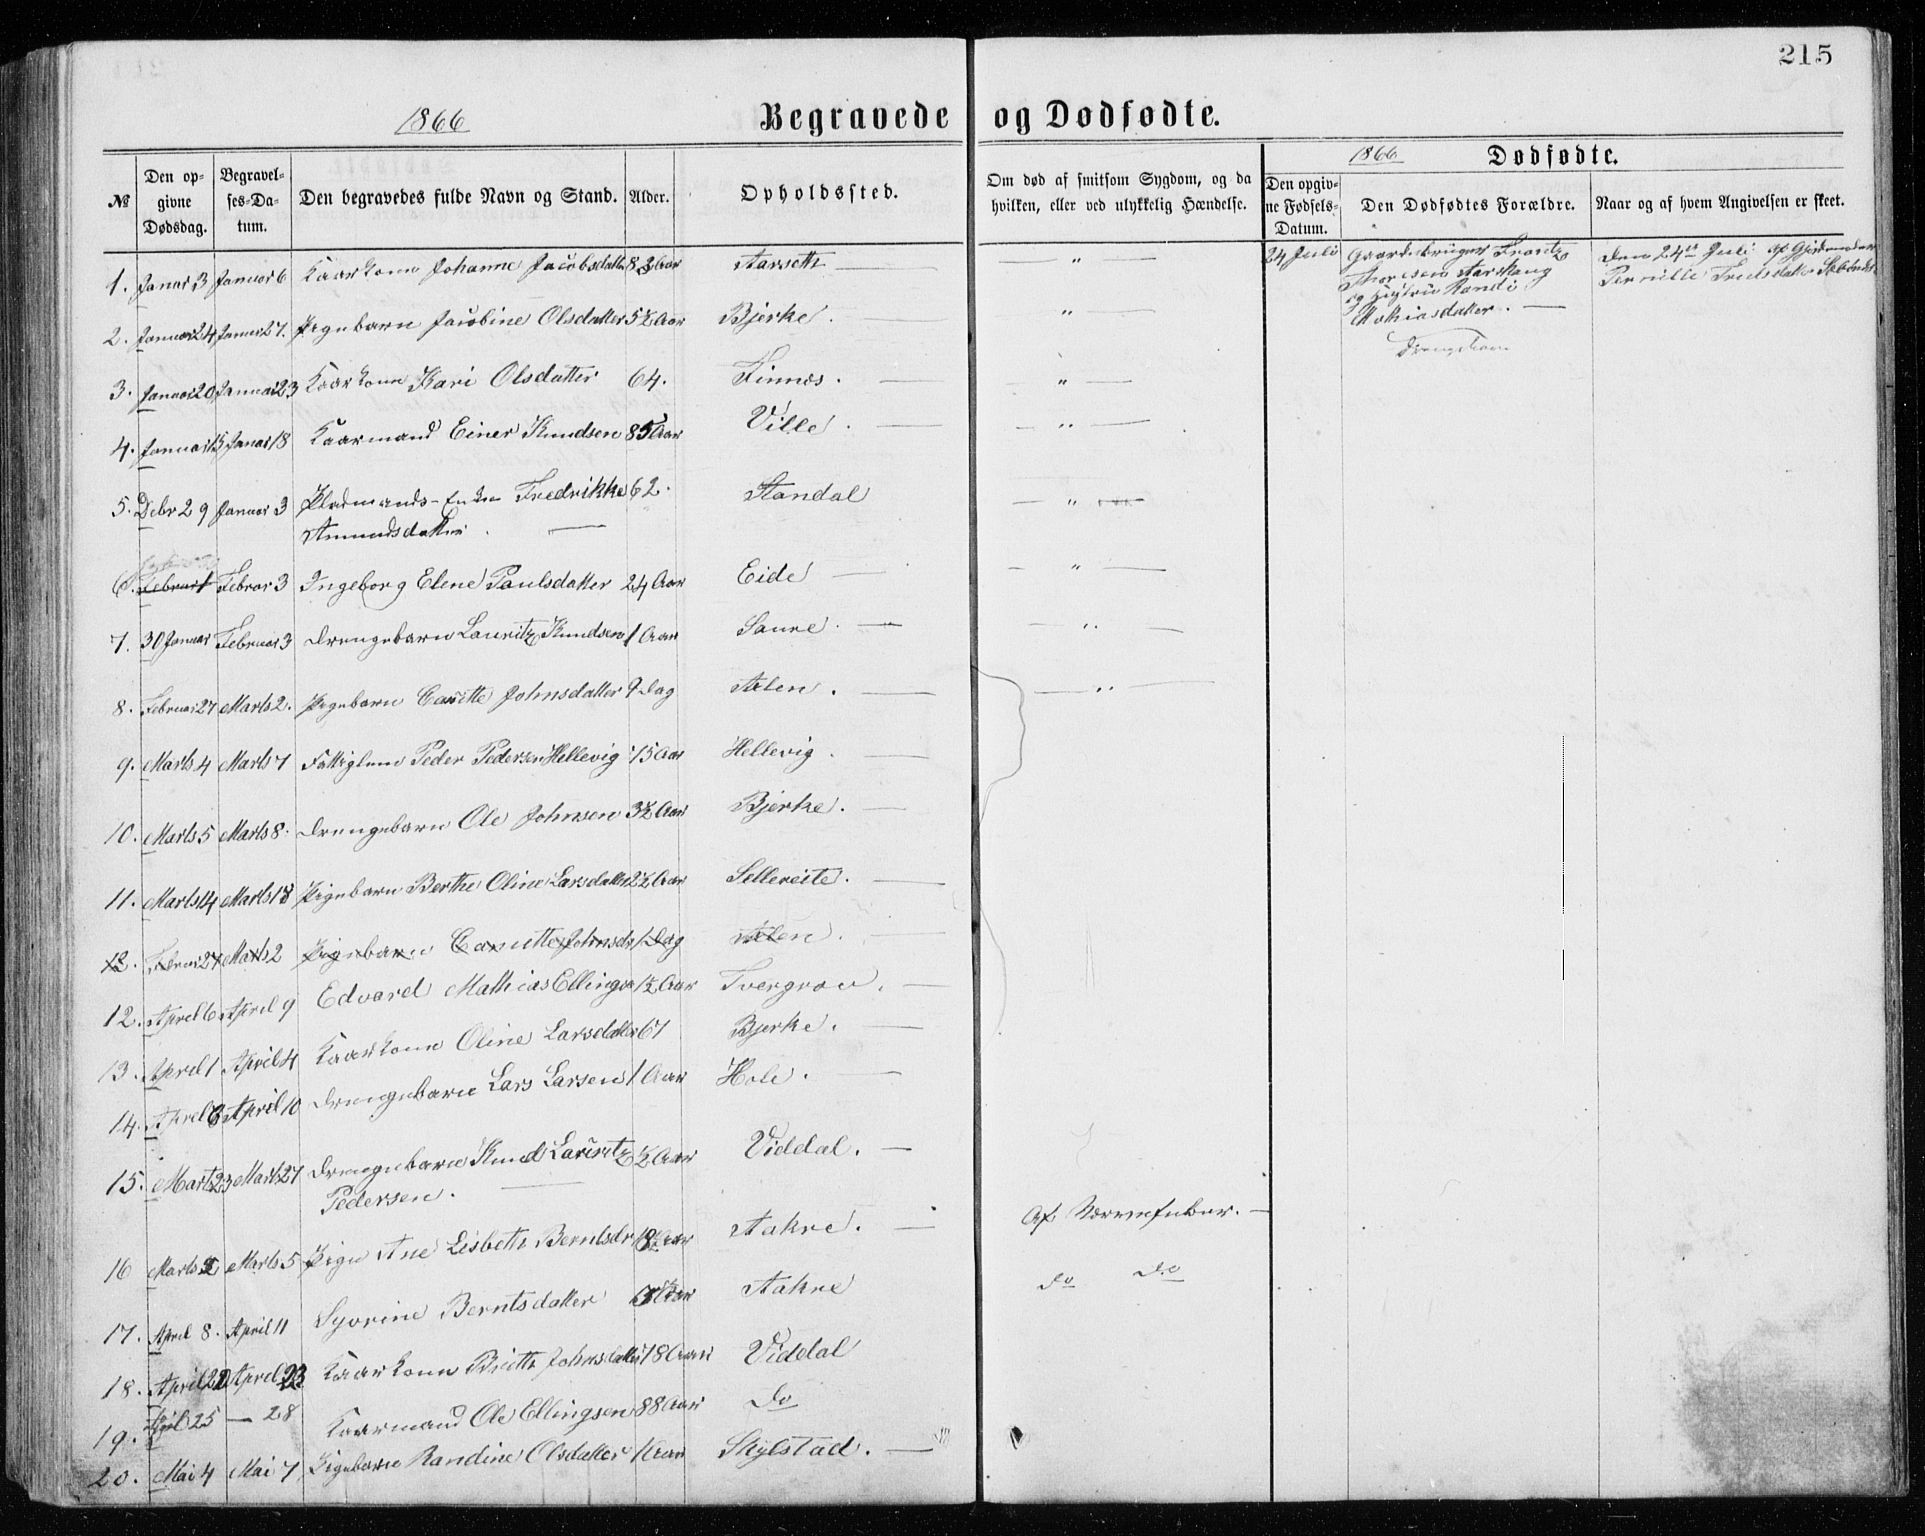 215
1866 Begravede og Dødfødte.
1866 Dødfødte.
№ Den opgivne Dødsdag. Begravelses-Datum. Den begravedes fulde Navn og Stand. Alder. Opholdssted. Om død af smitsom Sygdom, og da hvilken, eller ved ulykkelig Hændelse. Den opgivne Fødsels-Datum. Den Dødfødtes Forældre. Naar og af hvem Angivelsen er skeet.
1. Januar 3 Januar 6 Kaarkone Johanne Jacobsdatter 82 Aar Aarseth — " —
24 Juli Gaardbruger Frantz
Thoresen Aarskoug
og Hustru Randi
Mathiasdatter. —
Drengebarn
Den 24de Juli af Gjordemoder
Pernille Fredsdatter
2. Januar 24 Januar 27. Pigebarn Jacobine Olsdatter 5½ Aar Bjerke. — " —
3. Januar 20 Januar 23 Kaarkone Kari Olsdatter 64. Finnes. — " —
4. Januar 15 Januar 18 Kaarmand Einer Knudsen 85 Aar Ville. — " —
5. Debr 29 Januar 3 Pladsmands-Enke Fredrikke 62. Standal — "
Amundsdatter. —
6. Februar 1 Februar 3 Ingeborg Elene Paulsdatter 24 Aar Eide — " —
7. 30 Januar Februar 3 Drengebarn Lauritz Knudsen 1 Aar Saure. — " —
8. Februar 27 Marts 2. Pigebarn Canutte Johnsdatter 9 Dag Aalen. — " —
9. Marts 4 Marts 7 Fattiglem Peder Pedersen Hellevig 75 Aar Hellevig. —
10. Marts 5 Marts 8. Drengebarn Ole Johnsen 3½ Aar Bjerke. —
11. Marts 14 Marts 18 Pigebarn Berthe Oline Larsdatter 2½ Aar Sellereite. —
12. Februar 27 Marts 2 Pigebarn Canutte Johnsdr 1 Dag Aalen. —
12. April 6 April 9 Edvard Mathias Ellingsen 1½ Aar Tvergrov. —
13. April 1 April 4 Kaarkone Oline Larsdatter 67 Bjerke. —
14. April 6 April 10 Drengebarn Lars Larsen 1 Aar Hole. —
15. Marts 23 Marts 27 Drengebarn Knud Lauritz ½ Aar Viddal. —
Pedersen. —
16 Marts 2 Marts 5 Pige Ane Lisbeth Berntsdr 18 Aar Aakre. — Af Nervefeber. —
17. April 8. April 11 Syvrine Berntsdatter Aar Aakre do do
18. April 22 April 23 Kaarkone Brithe Johnsdatter 78 Aar Viddal
19. April 25 — 28 Kaarmand Ole Ellingsen 88 Aar do
20. Mai 4 Mai 7 Pigebarn Randine Olsdatter 1 Aar Skylstad. —